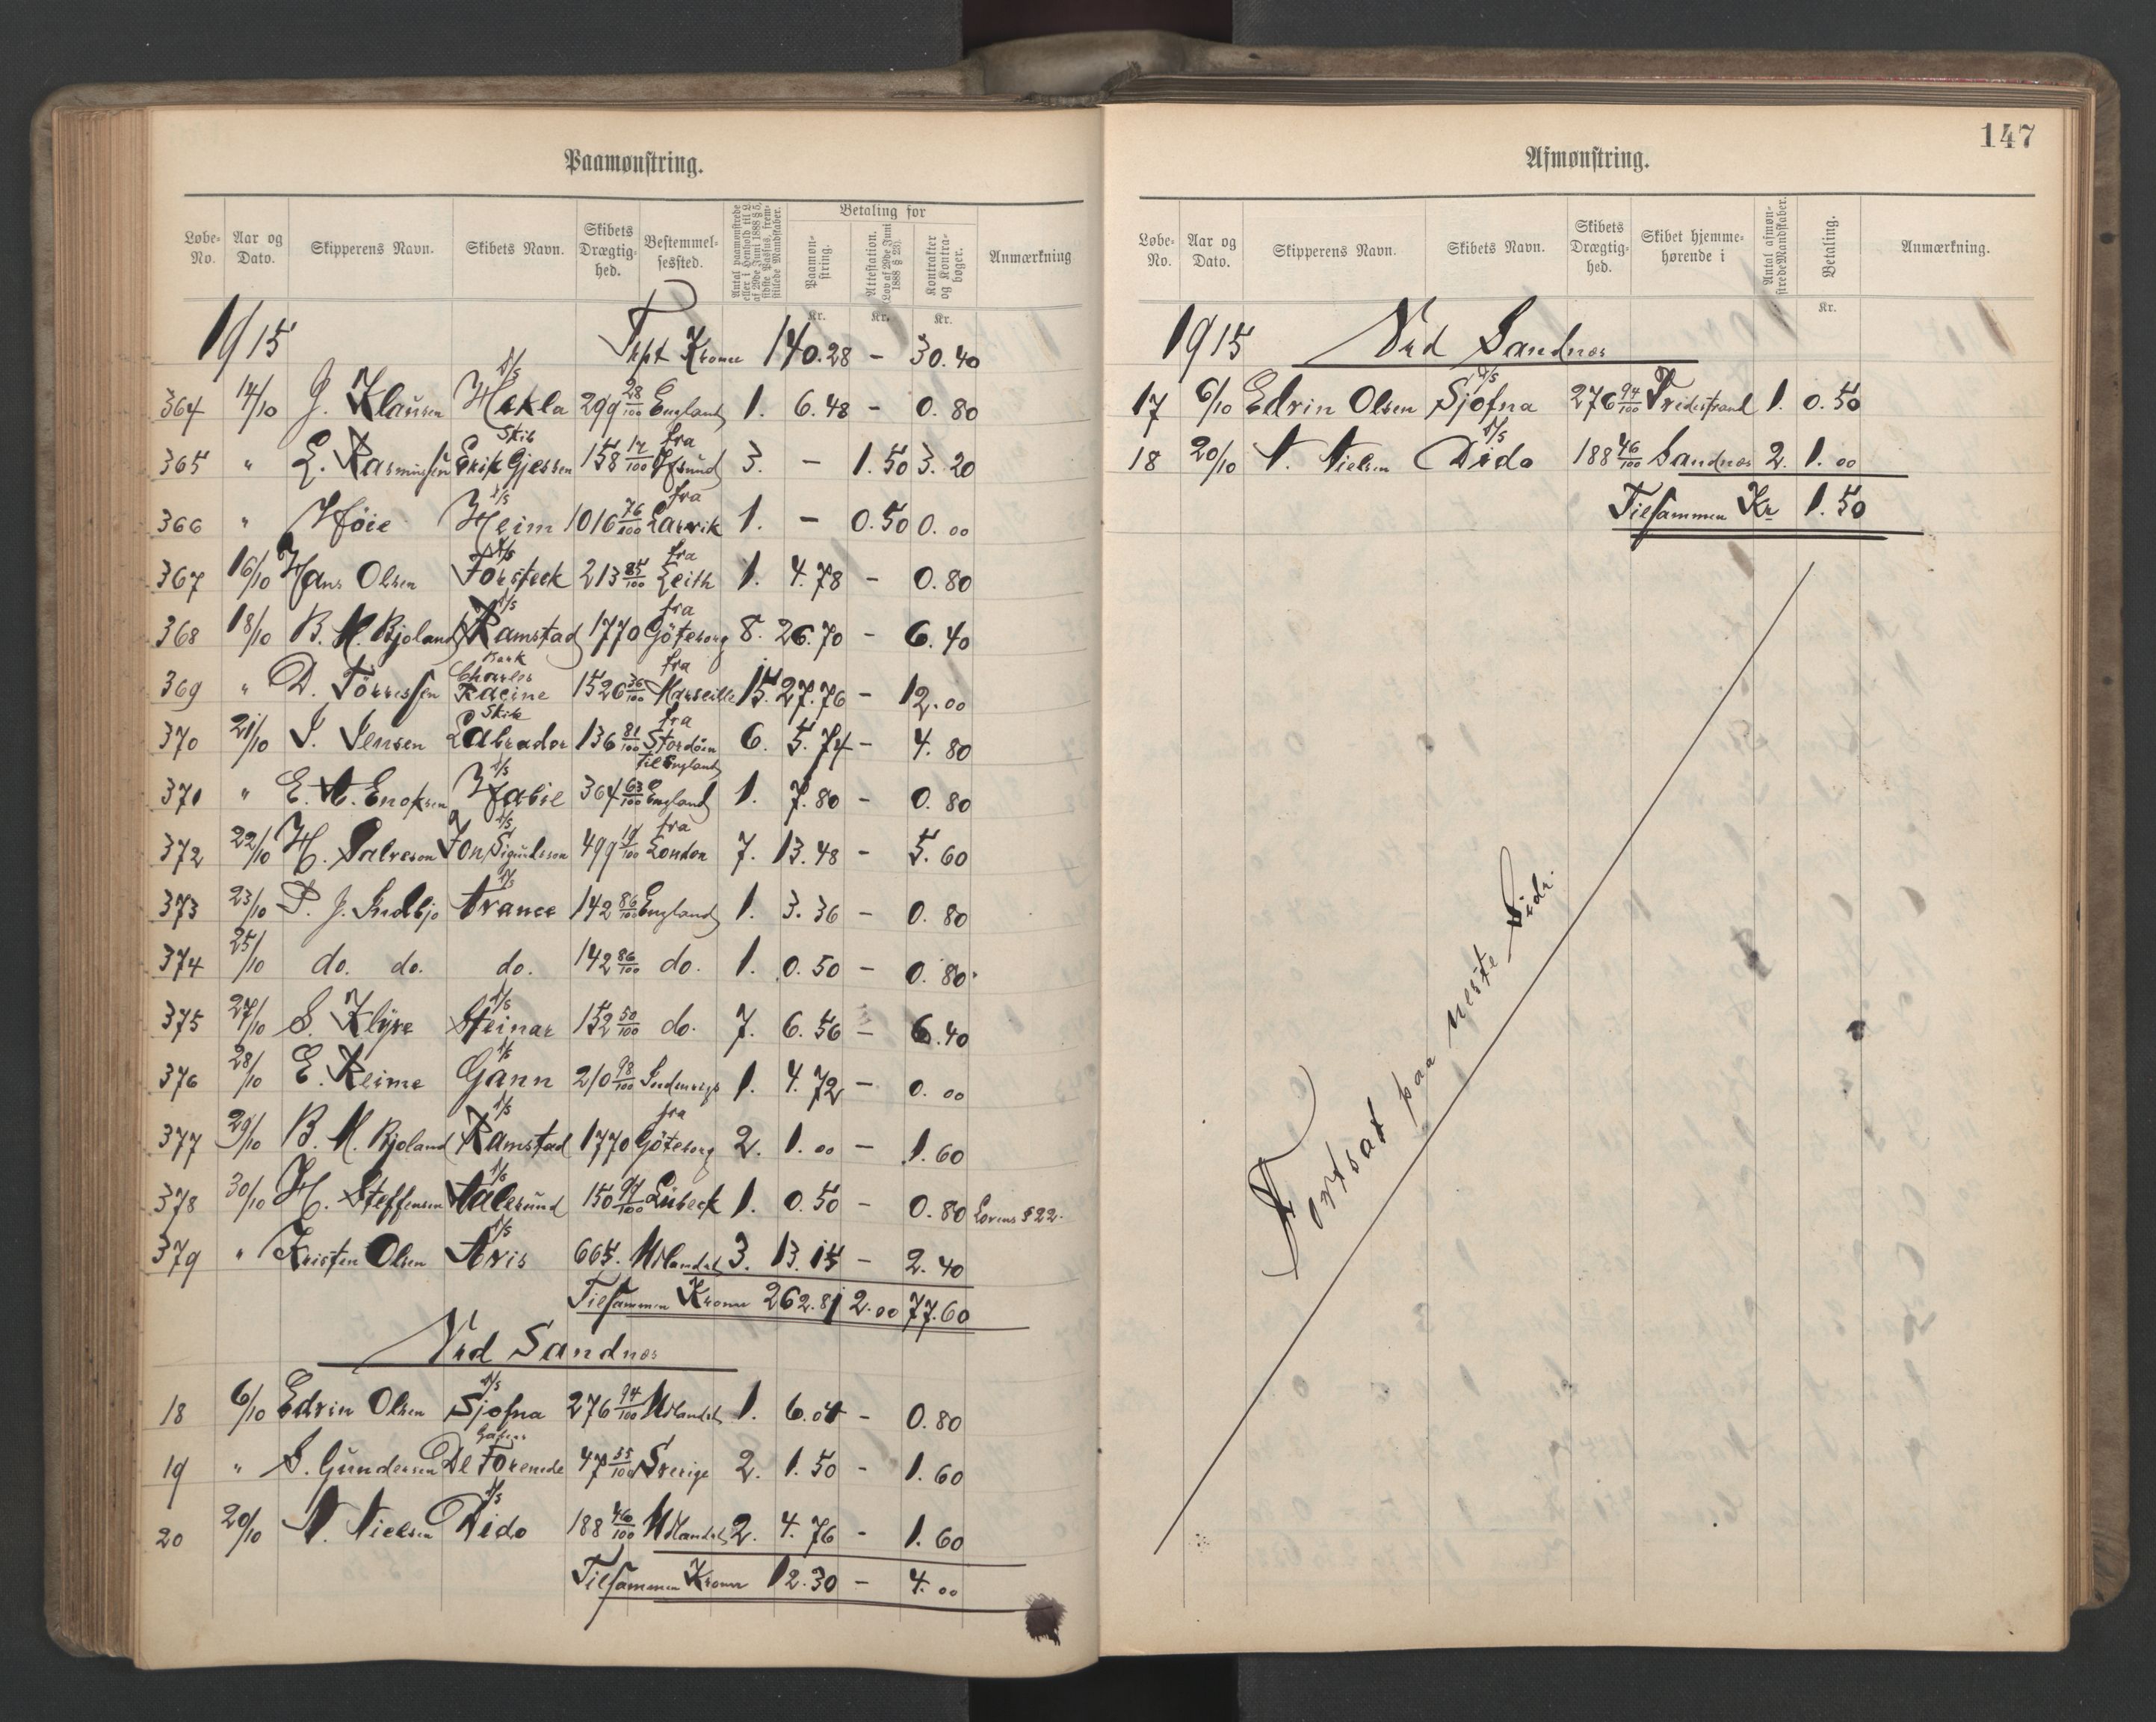 Paamønstring.
Løbe-No. Aar og Dato. Skipperens Navn. Skibets Navn. Skibets Drægtig-hed. Bestemmel-sessted. Antal paamønstrede eller i Henhold til L. af 29de Juni 1888 § 5, sidste Passus, frem-stillede Mandskaber. Betaling for Paamøn-string. Attestation. Lov af 29de Juni 1888 § 23). Kontrakter og Kontra-bøger. Anmærkning
Kr. Kr. Kr.
1915 Trspt Kroner 140.28 - 30.40
364 14/10 J. Klausen S/s Hekla 299 28/100 England 1. 6.48 - 0.80
365 " E. Rasmussen Skib Erik Gjessen 158 17/100 fra 3. - 1.50 3.20
366 " Høie S/s Heim 1016 76/100 fra Larvik 1. - 0.50 0.00
367 16/10 Hans Olsen S/s Forsteck 213 85/100 fra Leith 1. 4.78 - 0.80
368 18/10 B. M. Bjoland S/s Ramstad 1770 fra Göteborg 8. 26.70 - 6.40
369 " D. Törressen Bark Charles Racine 1526 36/100 fra Marseille 15. 27.76 - 12.00
370 21/10 J. Jensen Skib Labrador 136 81/100 fra Stordöen til England 6. 5.74 - 4.80
371 " E. A. Enoksen S/s 364 63/100 England 1. 7.80 - 0.80
372 22/10 H. Salveson S/s Jon Sigurdsson 499 19/100 fra London 7. 13.48 - 5.60
373 23/10 P. J. S/s Avance 142 86/100 England 1. 3.36 - 0.80
374 25/10 do. do. do. 142 86/100 do. 1. 0.50 - 0.80
375 27/10 S. Klype S/s Steinar 152 50/100 do. 7. 6.56 - 6.40
376 28/10 E. Reime S/s Gann 210 98/100 Indenrigs 1. 4.72 - 0.00
377 29/10 B. M. Bjoland S/s Ramstad 1770 fra Göteborg 2. 1.00 - 1.60
378 30/10 H. Steffensen S/s Aalesund 150 97/100 Lübeck 1. 0.50 - 0.80 Lovens § 22.
379 " Kristen Olsen S/s Avis 665. Udlandet 3. 13.15 - 2.40
Tilsammen Kroner 262.81 2.00 77.60
Ved Sandnes
18 6/10 Edvin Olsen S/s Sjofna 276 94/100 Udlandet 1. 6.04 - 0.80
19 " S. Gundersen Galeas De Forenede 47 35/100 Sverige 2. 1.50 - 1.60
20 20/10 N. Nielsen S/s Dido 188 46/100 Udlandet 2. 4.76 - 1.60
Tilsammen Kroner 12.30 - 4.00
147
Afmønstring.
Løbe-No. Aar og Dato. Skipperens Navn. Skibets Navn. Skibets Drægtig-hed. Skibet hjemme-hørende i Antal afmøn-strede Mandskaber. Betaling. Anmærkning.
Kr.
1915 Ved Sandnes
17 6/10 Edvin Olsen S/s Sjofna 276 94/100 1. 0.50
18 20/10 N. Nielsen S/s Dido 188 46/100 Sandnes 2. 1.00
Tilsammen Kr 1.50
Fortsat paa neste Side.